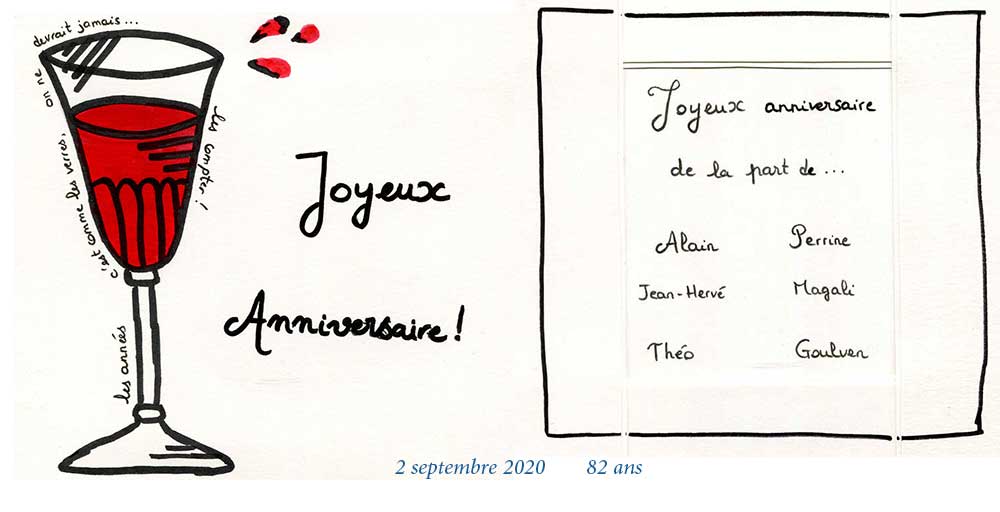 les années
c'est comme les verres,
on ne
devrait jamais...
les compter !
Joyeux
Anniversaire !
Joyeux anniversaire
de la part de ...
Alain Perrine
Jean-Hervé Magali
Théo Goulven
2 septembre 2020 82 ans